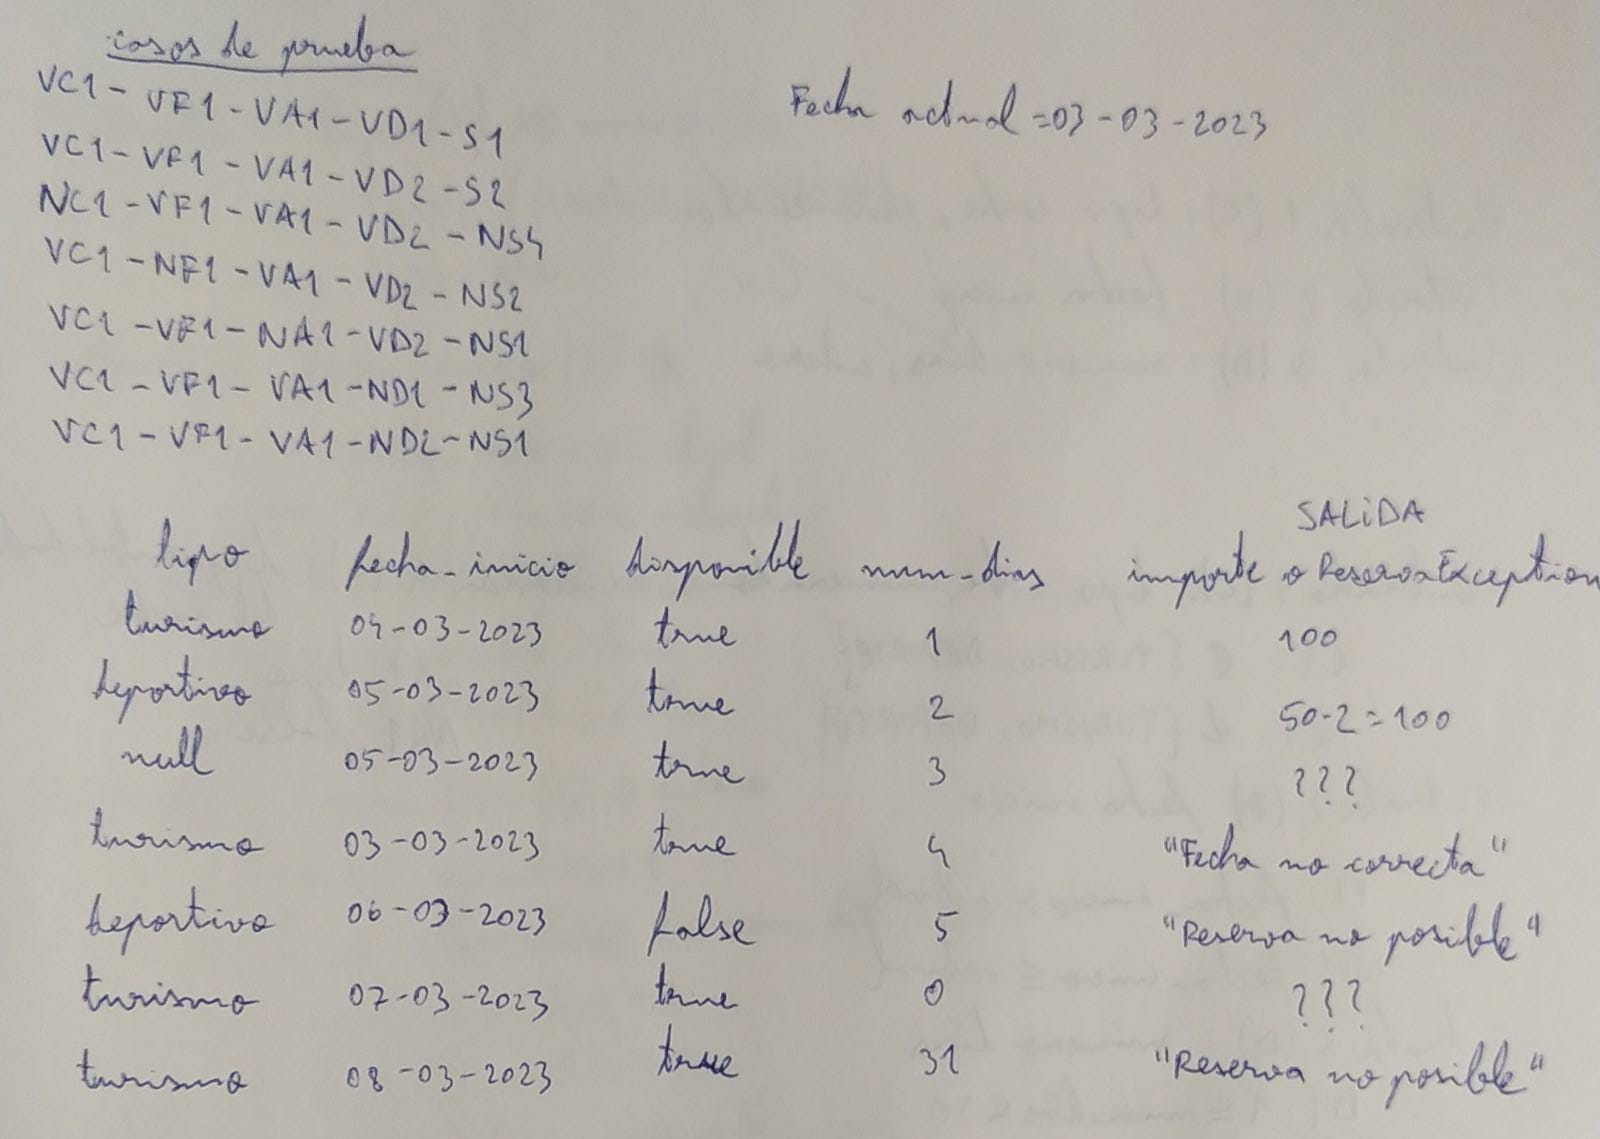 casos de prueba
VC1 - VF1 - VA1 - VD1 - S1
Fecha actual = 03-03-2023
VC1 - VF1 - VA1 - VD2 - S2
NC1 - VF1 - VA1 - VD2 - NS4
VC1 - NF1 - VA1 - VD2 - NS2
VC1 - VF1 - NA1 - VD2 - NS1
VC1 - VF1 - VA1 - ND1 - NS3
VC1 - VF1 - VA1 - ND2 - NS1
SALIDA
tipo fecha_inicio disponible num-dias importe o ReservaException
turismo 04-03-2023 true 1 100
deportivo 05-03-2023 true 2 50·2=100
null 05-03-2023 true 3 ???
turismo 03-03-2023 true 4 "Fecha no correcta"
deportivo 06-03-2023 false 5 "Reserva no posible"
turismo 07-03-2023 true 0 ???
turismo 08-03-2023 true 31 "Reserva no posible"